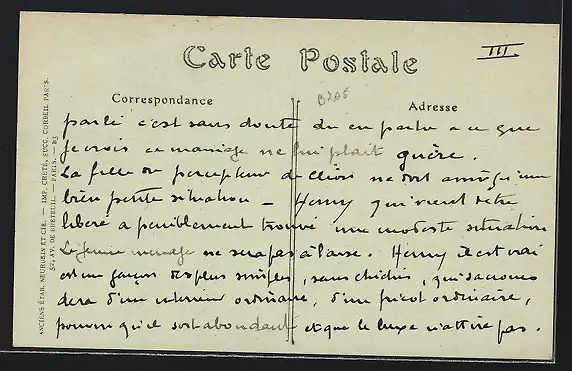 Carte Postale
III
B205
Correspondance
Adresse
parlé c'est sans doute du en partie a ce que
je crois ce mariage ne lui plait guère.
La fille du percepteur de Clion ne doit avoir qu'une
bien petite situation — Henry qui vient d'etre
libéré a péniblement trouvé une modeste situation
Le jeune menage ne sera pas à l'aise. Henry il est vrai
est un garçon des plus simples, sans chichis, qui s'accommo
dera d'un interieur ordinaire, d'un fricot ordinaire,
pourvu qu'il soit abondant et que le luxe n'attire pas.
ANCIENS ÉTAB. NEURDEIN ET CIE. — IMP. CRÉTÉ, SUCC. CORBEIL PARIS.
52, AV. DE BRETEUIL. — PARIS. —